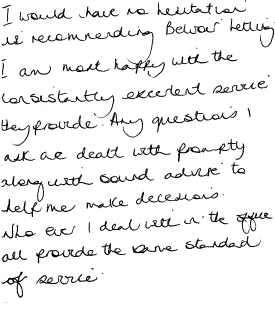 I would have no hesitation
is recommending Belvoir Letting
I am most happy with the
consistantly excellent service
they provide. Any questions I
ask are dealt with promptly
along with sound advise to
help me make decesions.
Who ever I deal with in the office
all provide the same standard
of service.